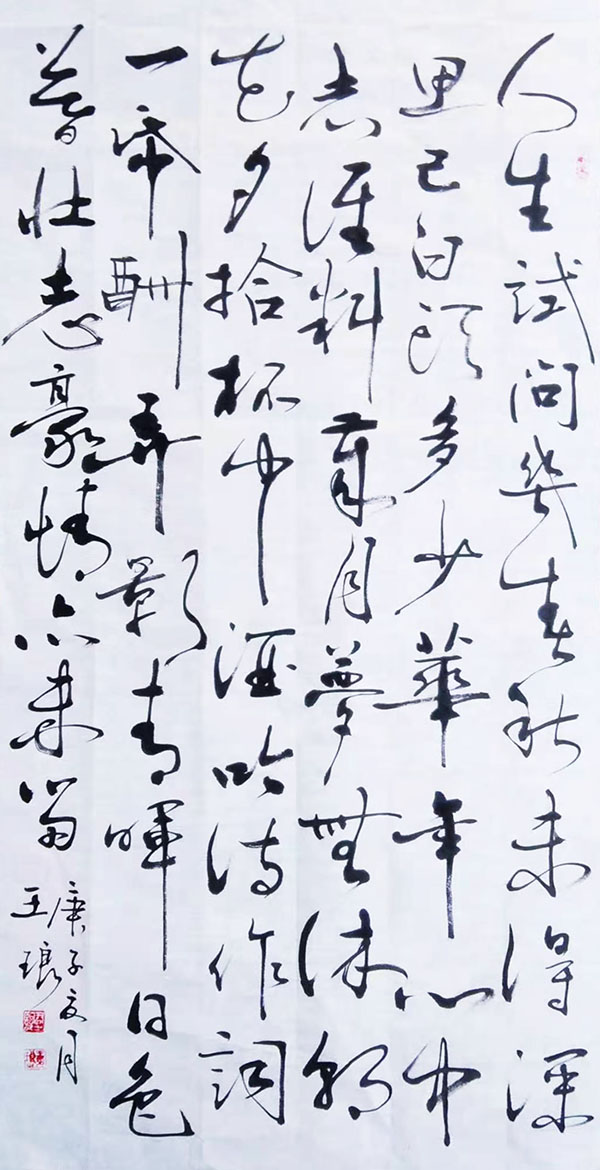 人生試問幾春秋未得深
思已白頭多少華年心中
志誰料歲月夢無休朝
花夕拾杯中酒吟詩作詞
一酬弄影青暉日色
暮壮志豪情亦未留
庚子夏月
王琅